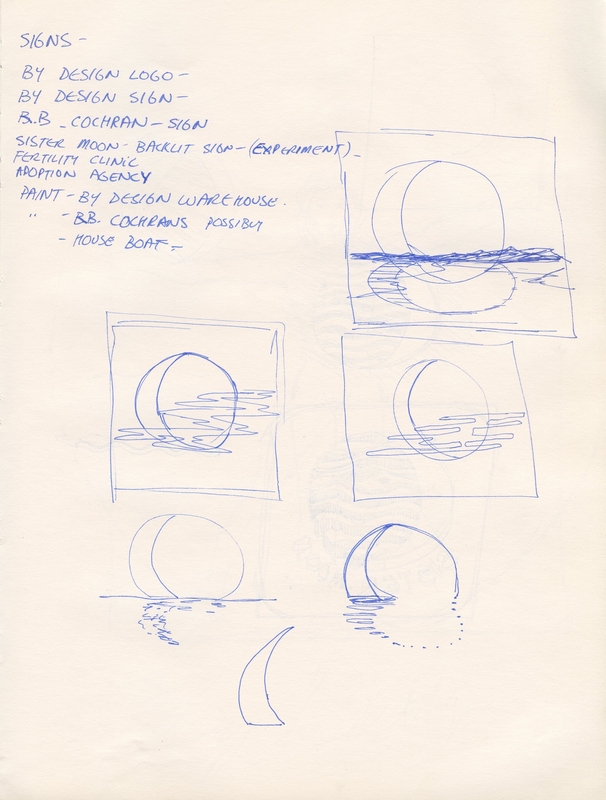 SIGNS -
BY DESIGN LOGO -
BY DESIGN SIGN -
B.B _ COCHRAN - SIGN
SISTER MOON - BACKLIT SIGN - (EXPERIMENT) _
FERTILITY CLINIC
ADOPTION AGENCY
PAINT - BY DESIGN WAREHOUSE.
" - B.B. COCHRANS POSSIBLY
- HOUSE BOAT -